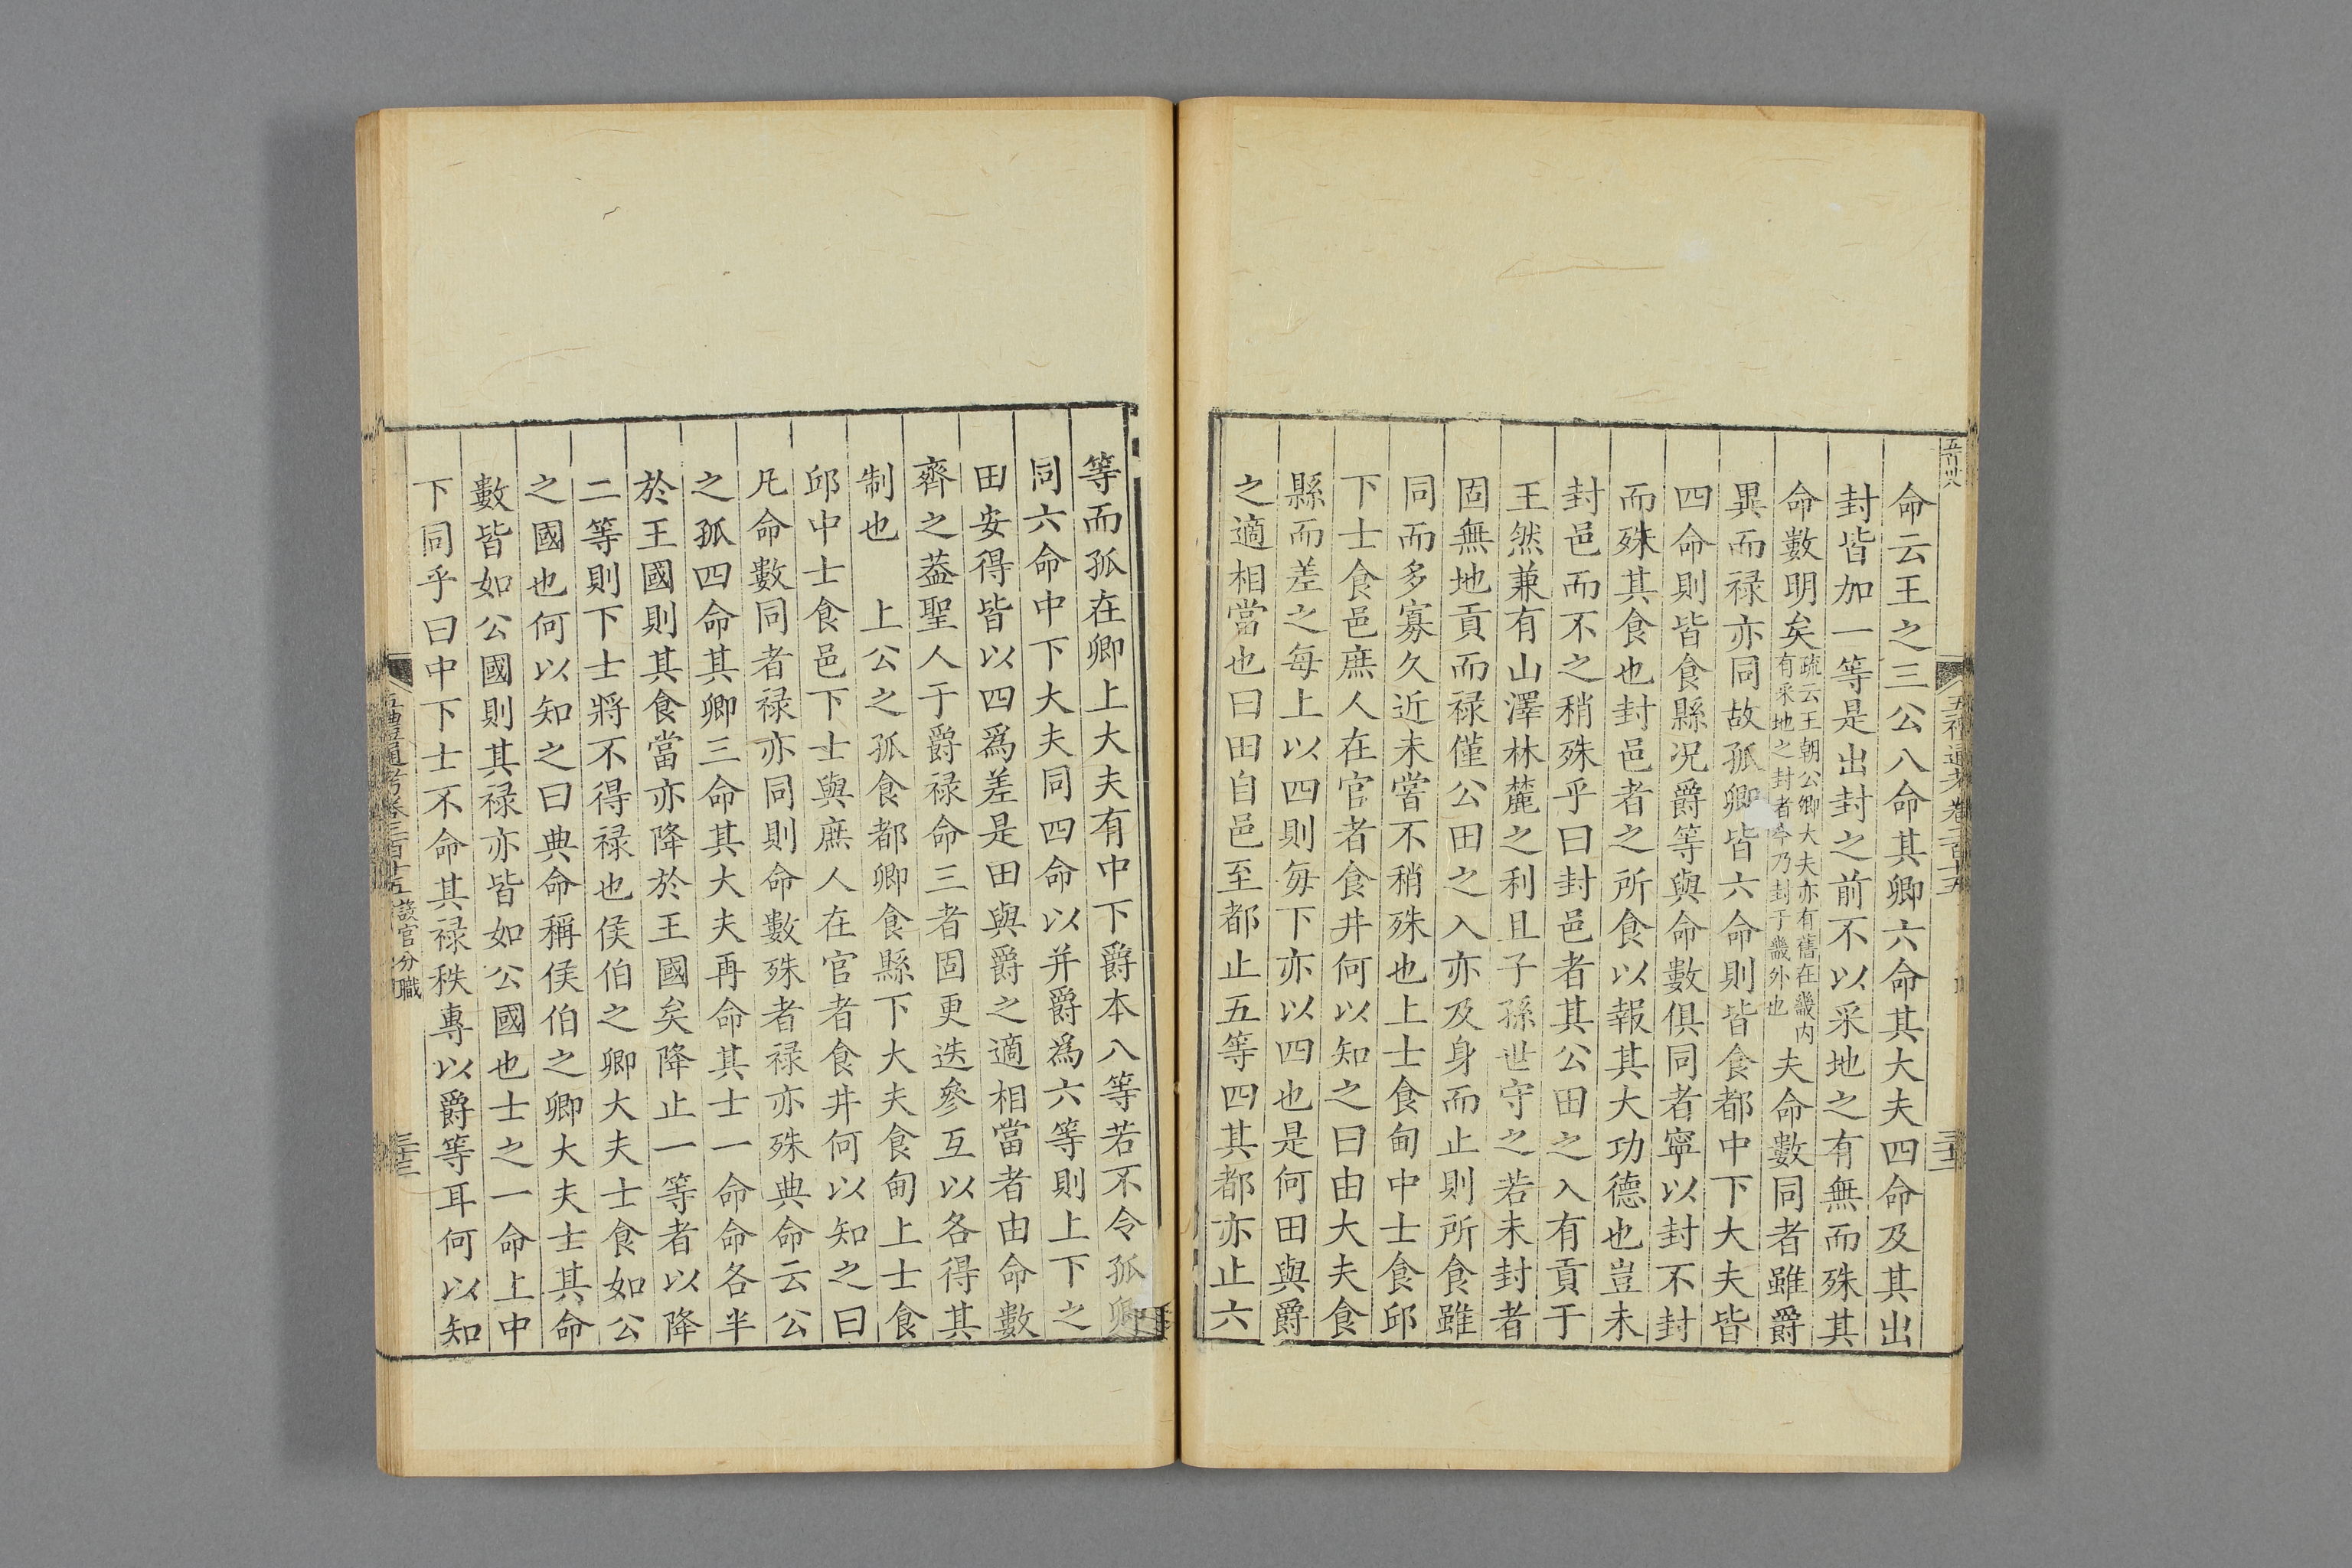 命云王之三公八命其卿六命其大夫四命及其出
封皆加一等是出封之前不以采地之有無而殊其
命數明矣疏云王朝公卿大夫亦有舊在畿内有采地之封者今乃封于畿外也夫命數同者雖爵
異而禄亦同故孤卿皆六命則皆食都中下大夫皆
四命則皆食縣况爵等與命數俱同者寧以封不封
而殊其食也封邑者之所食以報其大功德也豈未
封邑而不之稍殊乎曰封邑者其公田之入有貢于
王然兼有山澤林麓之利且子孫世守之若未封者
固無地貢而禄僅公田之入亦及身而止則所食雖
同而多寡久近未嘗不稍殊也上士食甸中士食邱
下士食邑庶人在官者食井何以知之曰由大夫食
縣而差之每上以四則每下亦以四也是何田與爵
之適相當也曰田自邑至都止五等四其都亦止六
等而孤在卿上大夫有中下爵本八等若不令孤卿
同六命中下大夫同四命以并爵為六等則上下之
田安得皆以四爲差是田與爵之適相當者由命數
齊之葢聖人于爵禄命三者固更迭參互以各得其
制也　上公之孤食都卿食縣下大夫食甸上士食
邱中士食邑下士與庶人在官者食井何以知之曰
凡命數同者禄亦同則命數殊者禄亦殊典命云公
之孤四命其卿三命其大夫再命其士一命命各半
於王國則其食當亦降於王國矣降止一等者以降
二等則下士將不得禄也侯伯之卿大夫士食如公
之國也何以知之曰典命稱侯伯之卿大夫士其命
數皆如公國則其禄亦皆如公國也士之一命上中
下同乎曰中下士不命其禄秩專以爵等耳何以知
五禮通考卷二百十五 設官分職